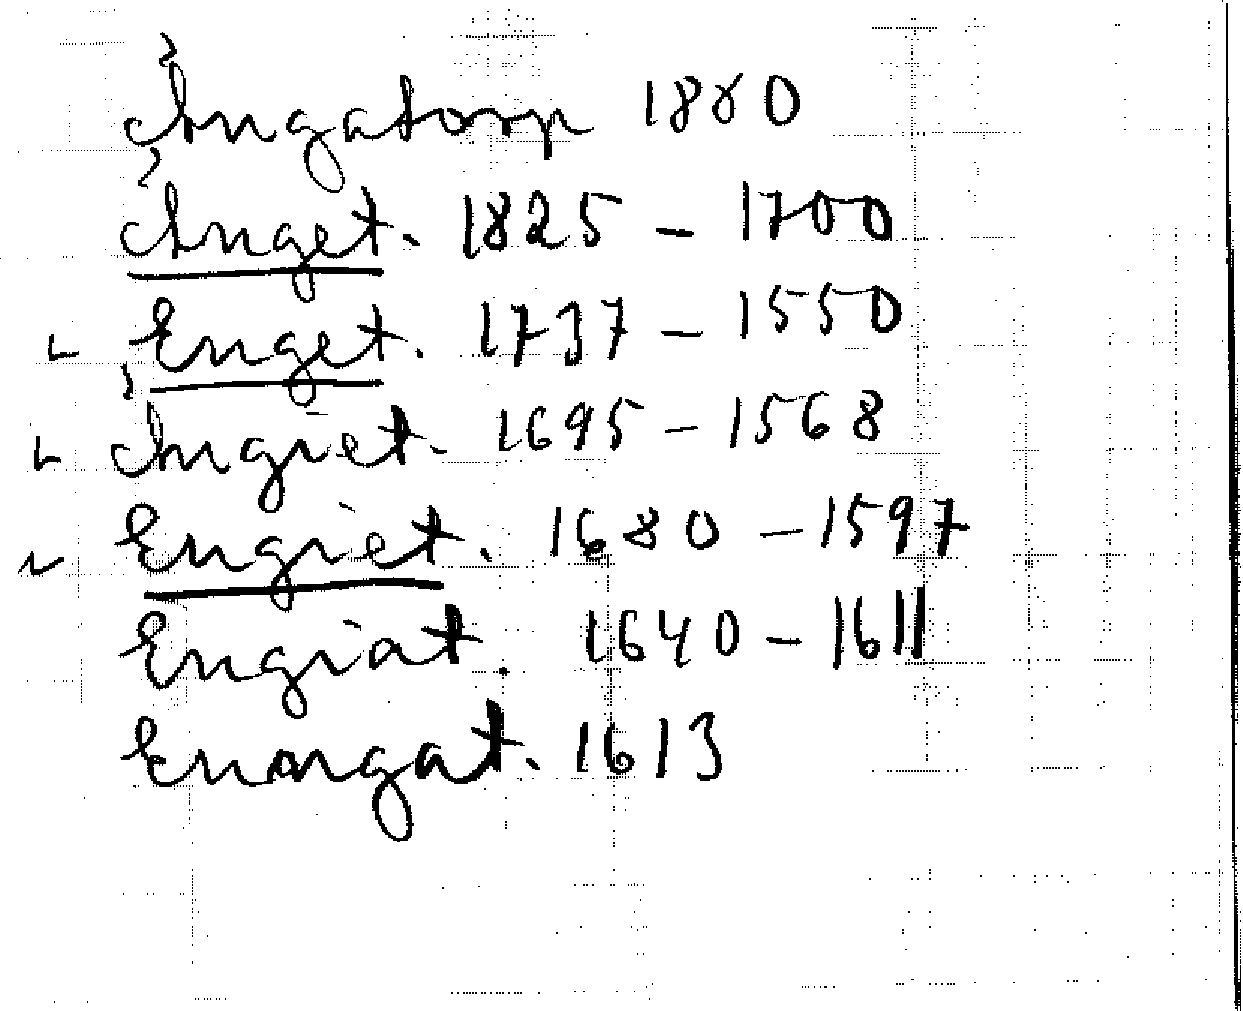 Ingatorp 1880
Inget. 1825 - 1700
Enget. 1737 - 1550
Ingiet. 1695 - 1568
Engiet. 1680 - 1597
Engiat. 1640 - 1611
1613